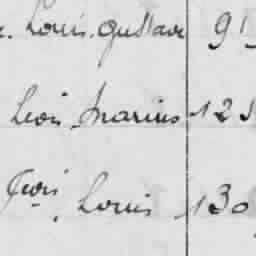 Louis Gustave 91
Léon Marius 125
Fçois Louis 130